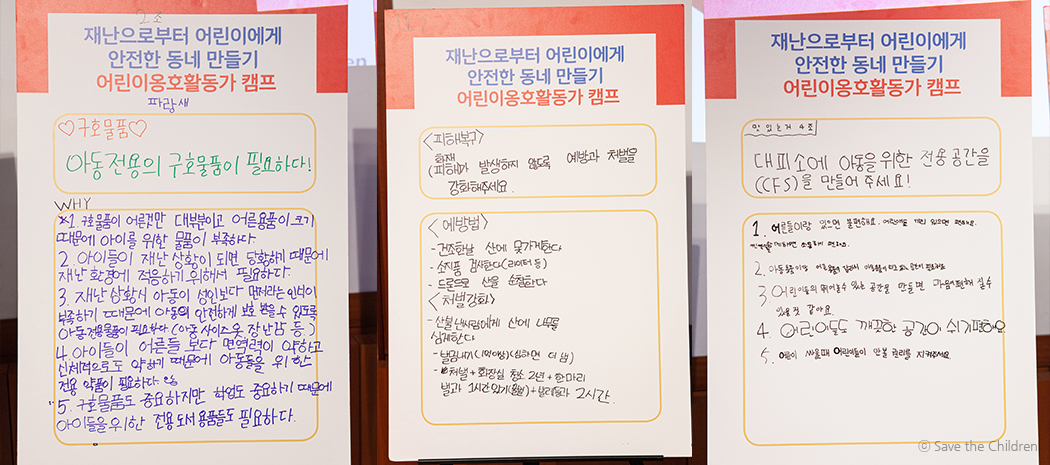 2조
재난으로부터 어린이에게
안전한 동네 만들기
어린이옹호활동가 캠프
파랑새
♡구호물품♡
아동전용의 구호물품이 필요하다!
WHY
1. 구호물품이 어른것만 대부분이고 어른용품이 크기
때문에 아이를 위한 물품이 부족하다.
2. 아이들이 재난 상황이 되면 당황하기 때문에
재난 환경에 적응하기 위해서 필요하다.
3. 재난 상황시 아동이 성인보다 먼저라는 인식이
부족하기 때문에 아동이 안전하게 보호 받을 수 있도록
아동전용물품이 필요하다 (아동 사이즈 옷, 장난감 등.)
4. 아이들이 어른들 보다 면역력이 약하고
신체적으로도 약하기 때문에 아동들을 위한
전용 약품이 필요하다.
5. 구호물품도 중요하지만 학업도 중요하기 때문에
아이들을 위한 전용 도서 용품들도 필요하다.
재난으로부터 어린이에게
안전한 동네 만들기
어린이옹호활동가 캠프
<피해복구>
화재
(피해)가 발생하지 않도록 예방과 처벌을
강화해주세요.
<예방법>
- 건조한날 산에 못가게한다
- 소지품 검사한다 (라이터 등)
- 드론으로 산을 순찰한다
<처벌강화>
- 산불낸사람에게 산에 나무를
심게한다
- 벌금내기 (1억이상) (심하면 더 냄)
- 처벌 + 화장실 청소 2년 + 한마리
벌과 1시간 있기 + 2시간.
재난으로부터 어린이에게
안전한 동네 만들기
어린이옹호활동가 캠프
맛있는거 4조
대피소에 아동을 위한 전용공간을
(CFS)을 만들어 주세요!
1. 어른들이랑 있으면 불편해요. 어린이들 끼리 있으면 편해요.
2. 아동용품이랑
3. 어린이들이 뛰어놀수 있는 공간을 만들면 마음 편해 질수
있을 것 같아요
4. 어린이들도 깨끗한 공간이 쉬기편해요
5. 어른이 싸울때 어린이들이 안볼 권리를 지켜주세요
ⓒ Save the Children